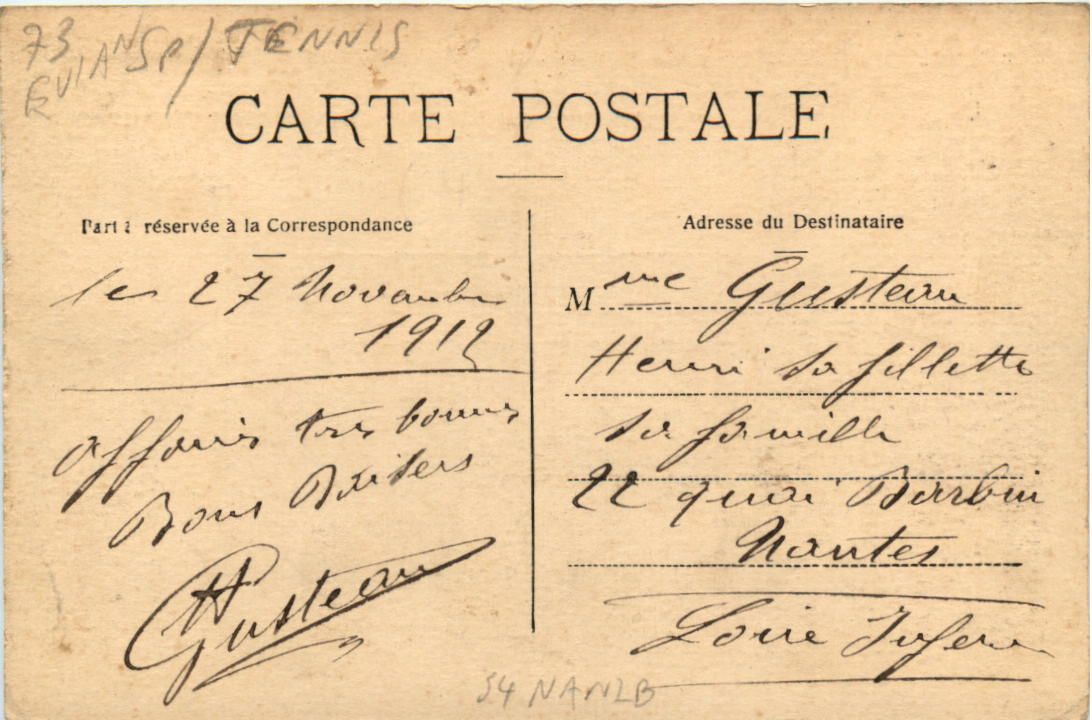 73
EVIAN SP/TENNIS
CARTE POSTALE
Partie réservée à la Correspondance
Adresse du Destinataire
le 27 Novembre
1912
affaires tres bonnes
Bons Baisers
H Gusteau
Mme Gusteau
Henri sa fillette
sa famille
22 quai Barbin
Nantes
Loire Infer
54 NANLB